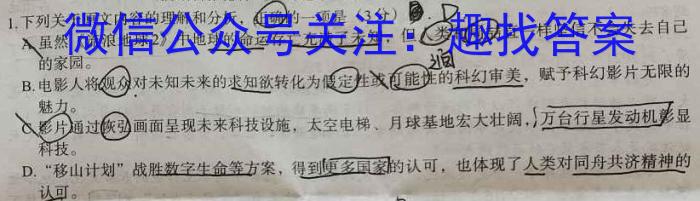 1.下列关 原文内容的理解和分析,正确的一项是(3分) B. D
微信公众号关注:趣找答案
A.虽然《流浪地球2》中地球的命运 充满了未知,但人类 失去自己
的家园。
B.电影人将观众对未知未来的求知欲转化为假定性或可能性的科幻审美,赋予科幻影片无限的
魅力。
C.影片通过恢弘画面呈现未来科技设施,太空电梯、月球基地宏大壮阔,万台行星发动机彰显
科技。
D.“移山计划”战胜数字生命等方案,得到更多国家的认可,也体现了人类对同舟共济精神的
认可。